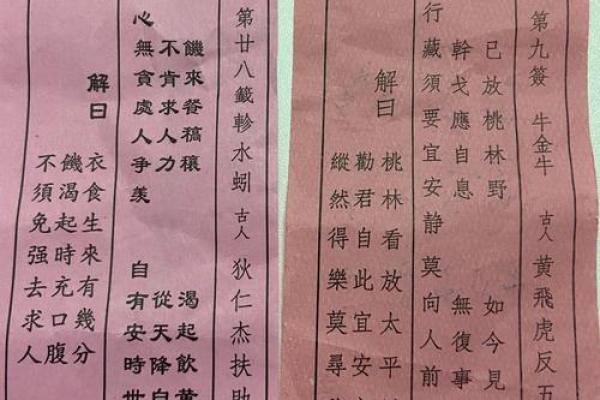 第九簽 牛金牛 古人 黃飛虎反五
已放桃林野 如今見
幹戈應自息 無復事
行藏須要宜安静 莫向人前
解曰
桃林看放太平
勸君自此宜安
縱然得樂莫尋
第廿八籤軫水蚓 古人 狄仁杰扶助
饑來餐稿穰 渴起飲黃
不肯求人力 從天降
心無貪處人争羨 自有安時世
解曰
衣食生來有幾分
饑渴起時充口腹
不須免强去求人